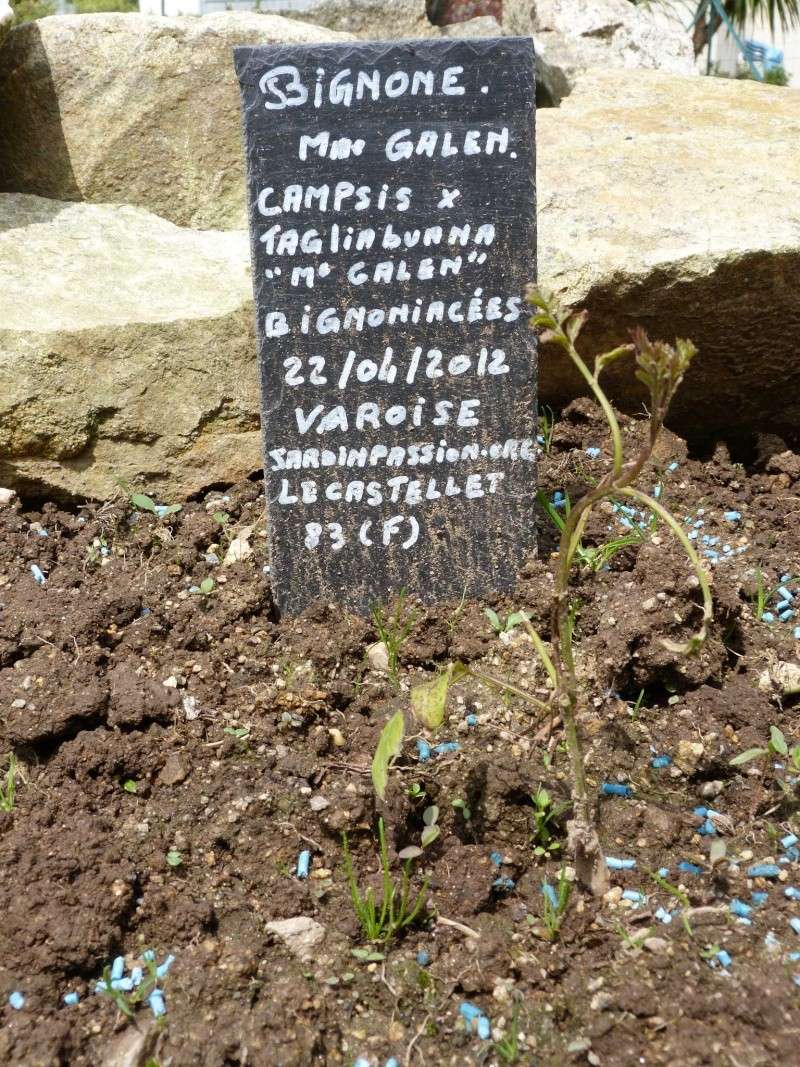 BIGNONE.
Mme GALEN.
CAMPSIS x
TAGLIABUANA
"Me GALEN"
BIGNONIACÉES
22/04/2012
VAROISE
JARDINPASSION.ORG
LE CASTELLET
83 (F)